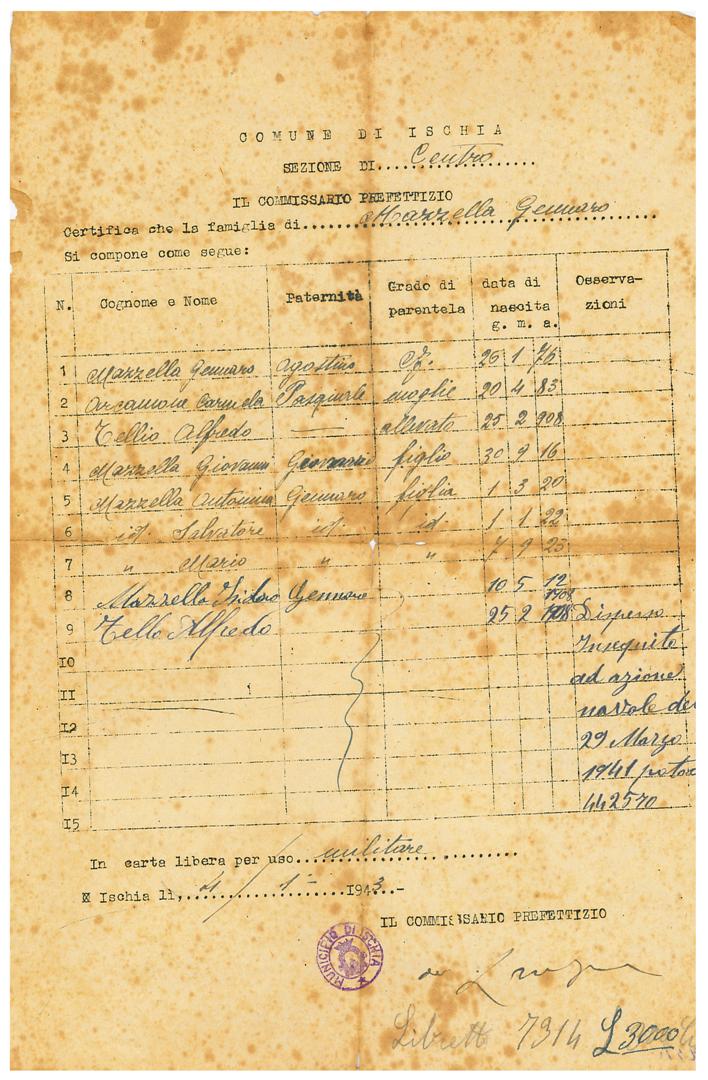 COMUNE DI ISCHIA
SEZIONE DI....Centro......
IL COMMISSARIO PREFETTIZIO
Certifica che la famiglia di....Mazzella Gennaro......
Si compone come segue:
N. Cognome e Nome Paternità Grado di parentela data di nascita g. m. a. Osserva-zioni
1 Mazzella Gennaro Agostino 26 1 76
2 Arcamone Carmela Pasquale moglie 20 4 83
3 Tellio Alfredo allevato 25 2 908
4 Mazzella Giovanni Gennaro figlio 30 9 16
5 Mazzella Antonina Gennaro figlia 1 3 20
6 id. Salvatore id. id. 1 1 22
7 " Mario " " 7 9 23
8 Mazzella Isidoro Gennaro 10 5 12
9 Tello Alfredo 25 2 1908 Disperso
10 Inseguito
11 ad azione
12 navale del
13 29 Marzo
14 1941
15 442570
In carta libera per uso...militare...............
Ischia lì,....4/1-..........1943.-
IL COMMISSARIO PREFETTIZIO
MUNICIPIO DI ISCHIA
Libretto 7314 £ 3000